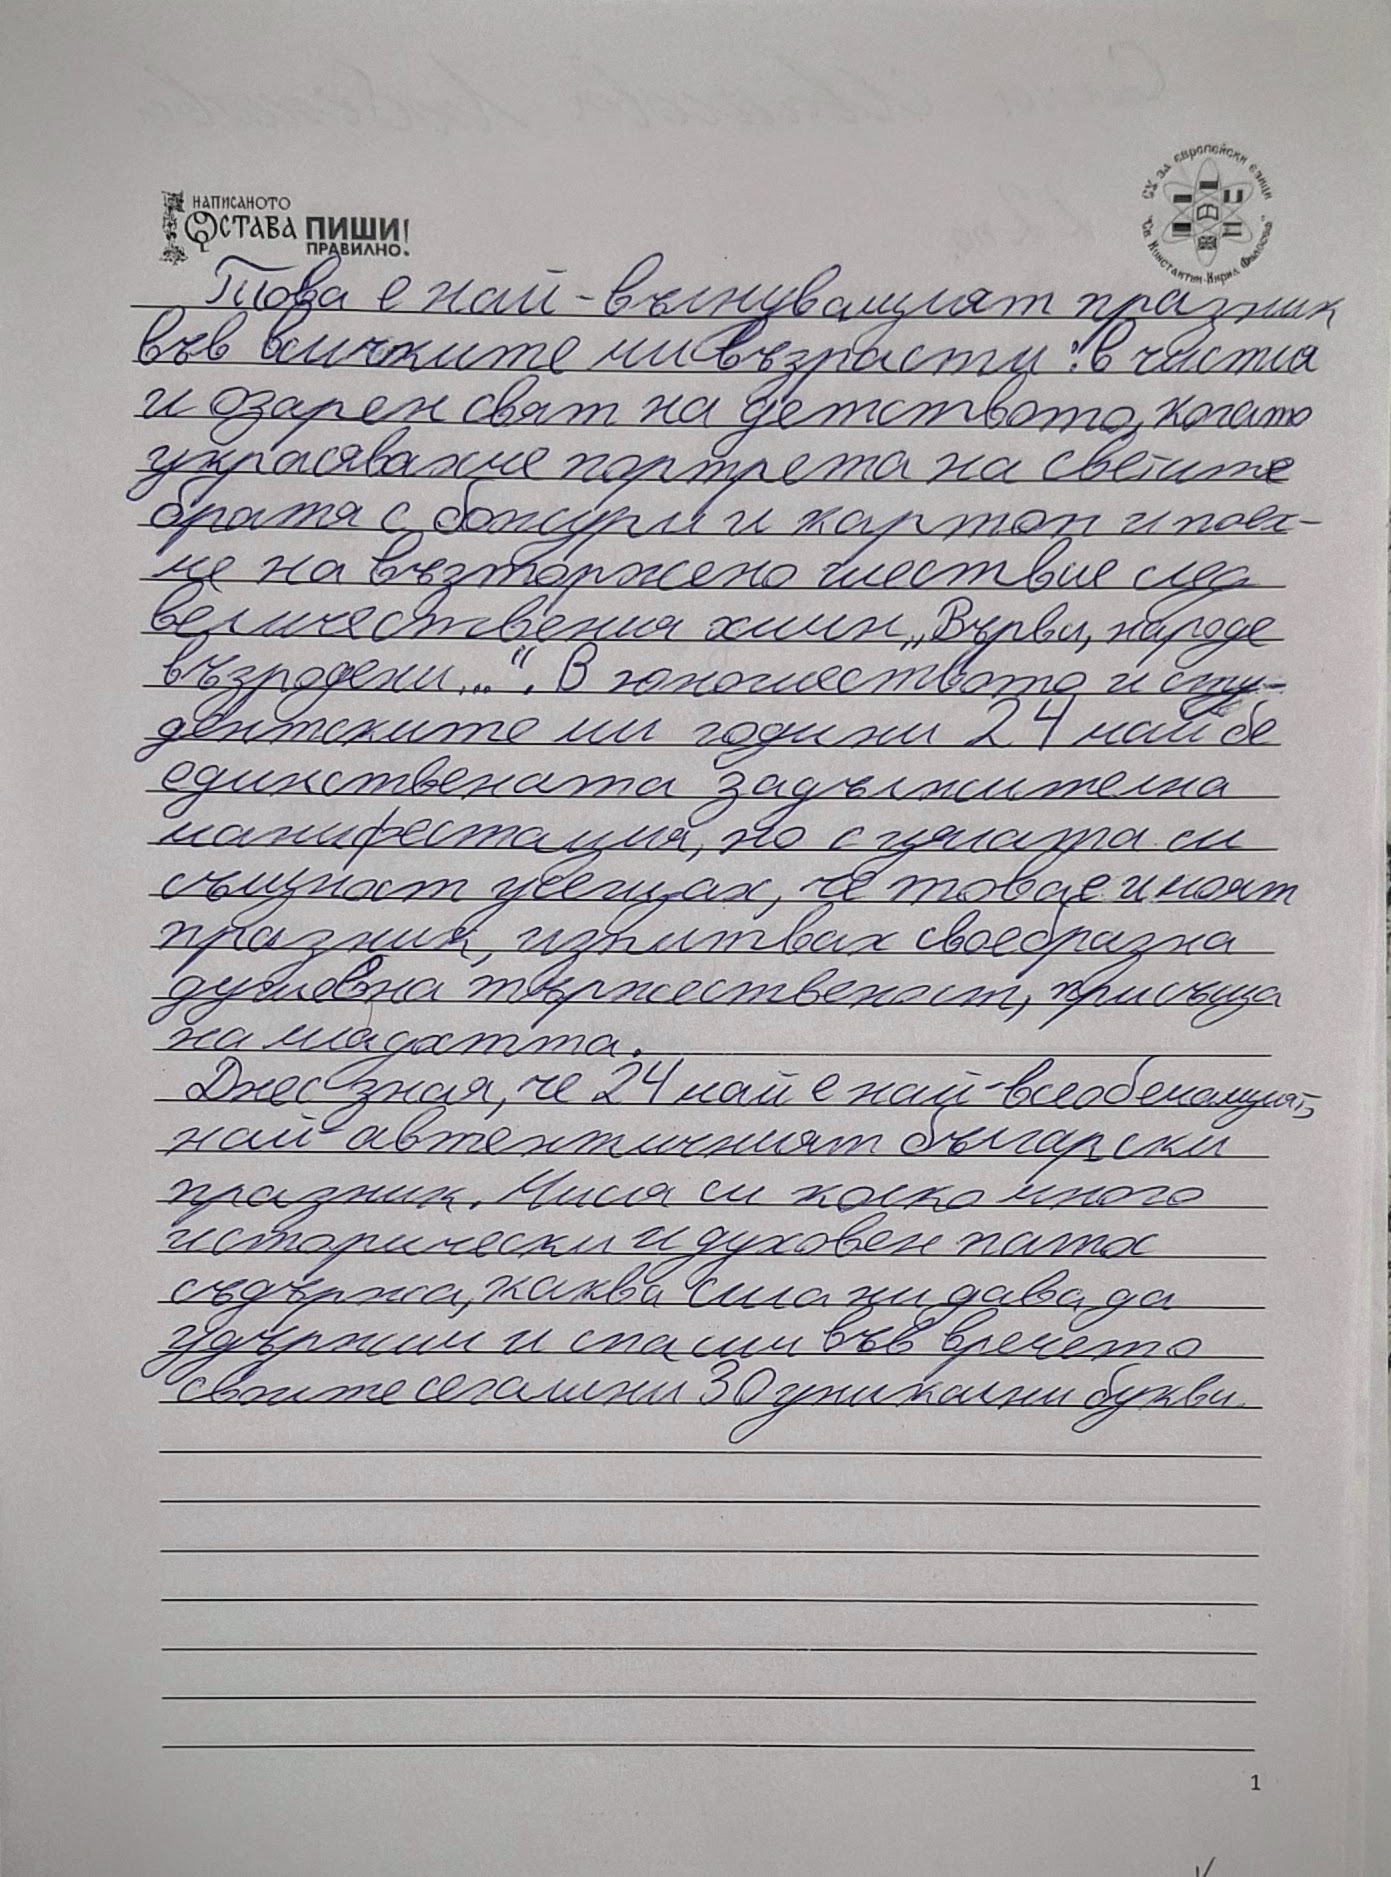 НАПИСАНОТО
ОСТАВА ПИШИ!
ПРАВИЛНО.
СУ за европейски езици
"Св. Константин-Кирил Философ"
Това е най-вълнуващият празник
във всичките ми възрасти: в чистия
и озарен свят на детството, когато
украсявахме портрета на светите
братя с божури и картон и поех-
ме на възторжено шествие след
величествения химн „Върви, народе
възродени...“. В юношеството и сту-
дентските ми години 24 май бе
единствената задължителна
манифестация, но с цялата си
същност усещах, че това е и моят
празник, изпитвах своеобразна
душевна тържественост, присъща
на младостта.
Днес зная, че 24 май е най-всеобемащият,
най-автентичният български
празник. Мисля си колко много
исторически и духовен патос
съдържа, каква сила ни дава, да
удържим и спасим във времето
своите сегашни 30 уникални букви.
1